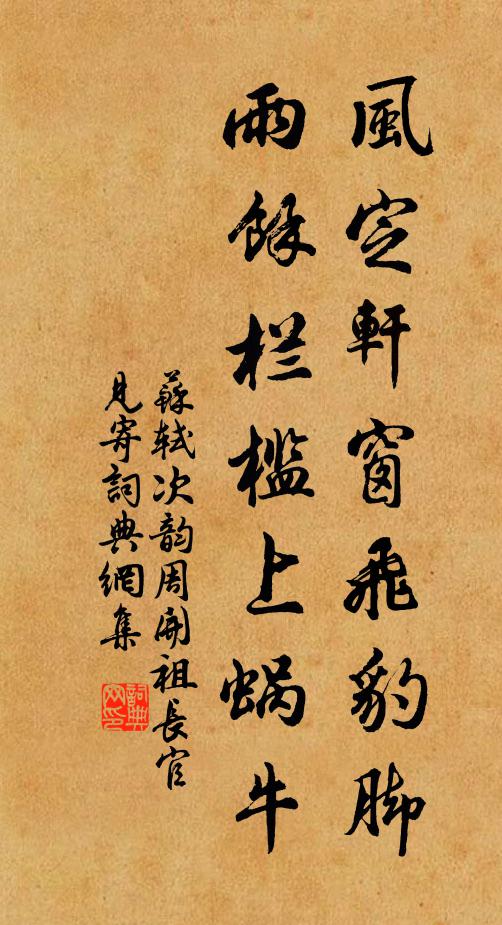 風定軒窗飛豹脚
雨餘栏檻上蜗牛
蘇軾次韵周開祖長官
見寄詞典網集
詞典网印